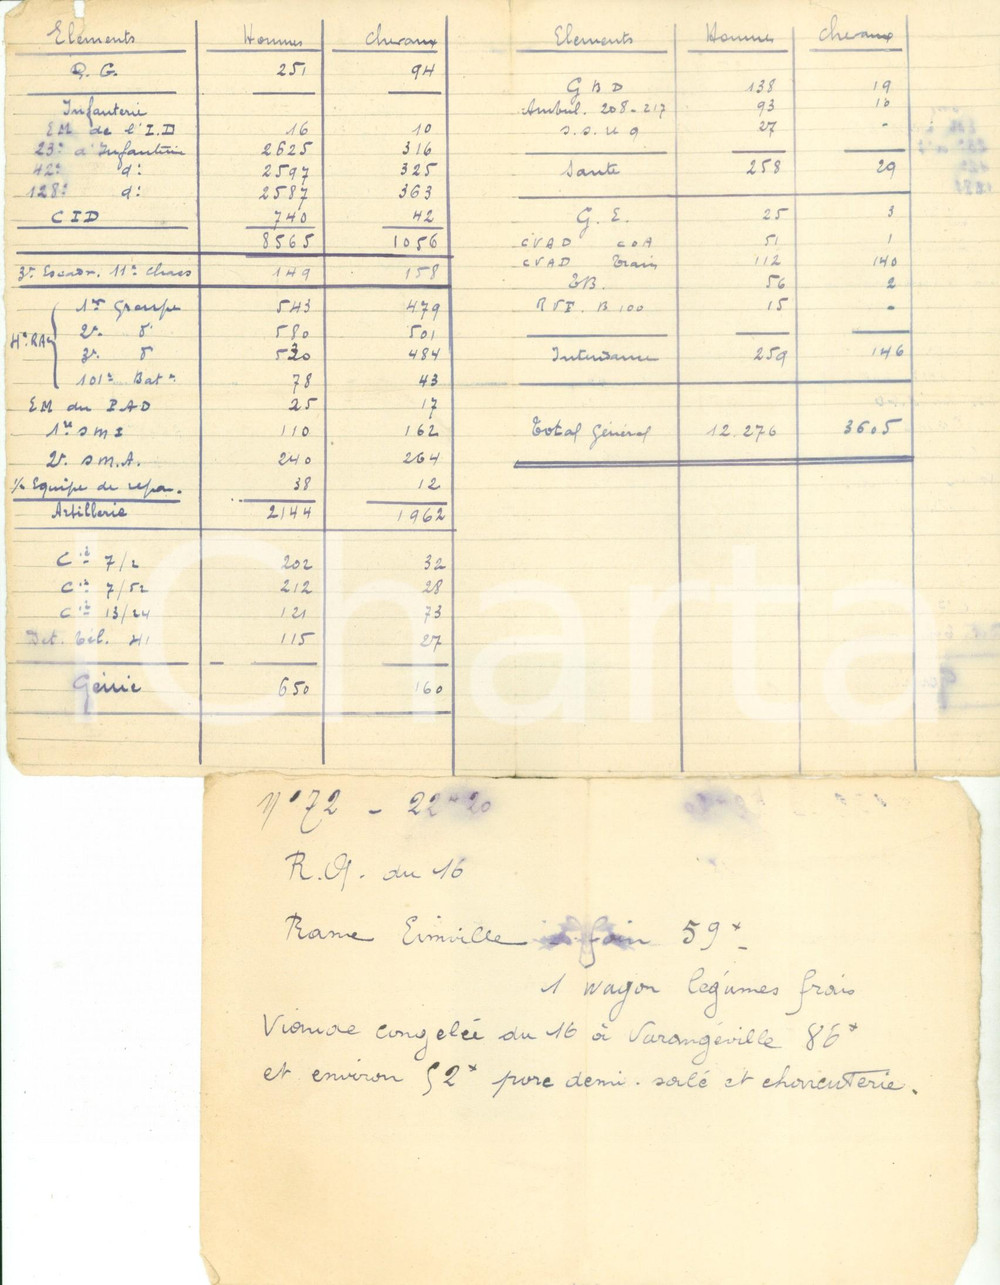 Elements Hommes Chevaux
Q. G. 251 94
Infanterie
EM de l'I.D 16 10
23e d'Infanterie 2625 316
42e d° 2597 325
128e d° 2587 363
CID 740 42
8565 1056
3e Escadr. 11e Chass 149 158
4e RA
1er Groupe 543 479
2e d° 580 501
3e d° 520 484
101e Bat 78 43
EM du PAD 25 17
1re SMI 110 162
2e SMA. 240 264
Equipe de repa. 38 12
Artillerie 2144 1962
Cie 7/2 202 32
Cie 7/52 212 28
Cie 13/24 121 73
Det. Tél. 41 115 27
Génie 650 160
Elements Hommes Chevaux
GBD 138 19
Ambul. 208-217 93 10
S.S.U 9 27 -
Santé 258 29
G. E. 25 3
CVAD COA 51 1
CVAD Train 112 140
TB. 56 2
RVF. B 100 15 -
Intendance 259 146
Total Général 12.276 3605
N°72 - 22h20
R.G. du 16
Rame Einville foin 59x
1 wagon légumes frais
Viande congelée du 16 à Varangéville 86x
et environ 52x porc demi-salé et charcuterie.
Charta